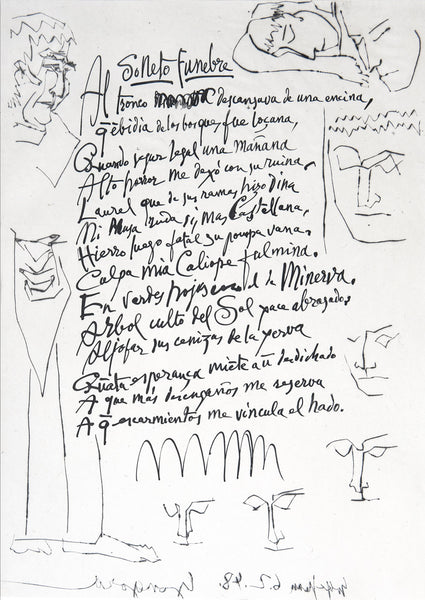 Soneto funebre
Al tronco descansava de una encina,
q̄ ēbidia de los bosques fue loçana,
Quando segur legal una mañana
Alto horror me dexó con su ruina.
Laurel que de sus ramas hizo dina
Mi ruda sí, mas Castellana,
Hierro luego fatal su pompa vana.
Culpa mia Caliope fulmina.
En verdes hojas cano el de Minerva.
Arbol culto del Sol yace abrazado.
Aljofar sus cenizas de la yerva
Quāta esperança miēte a ū desdichado
A que más desengaños me reserva
A q̄ escarmientos me vincula el hado.
6.2.48. Gongora